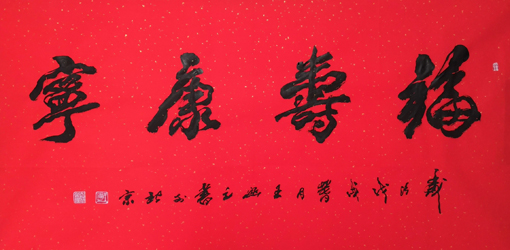 福壽康寧
歲次戊戌月王書於北京